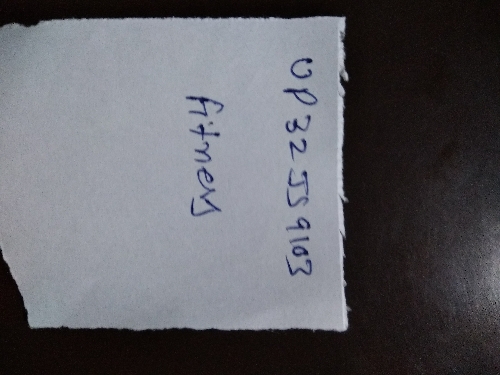 UP 32 JS 9163
fitness